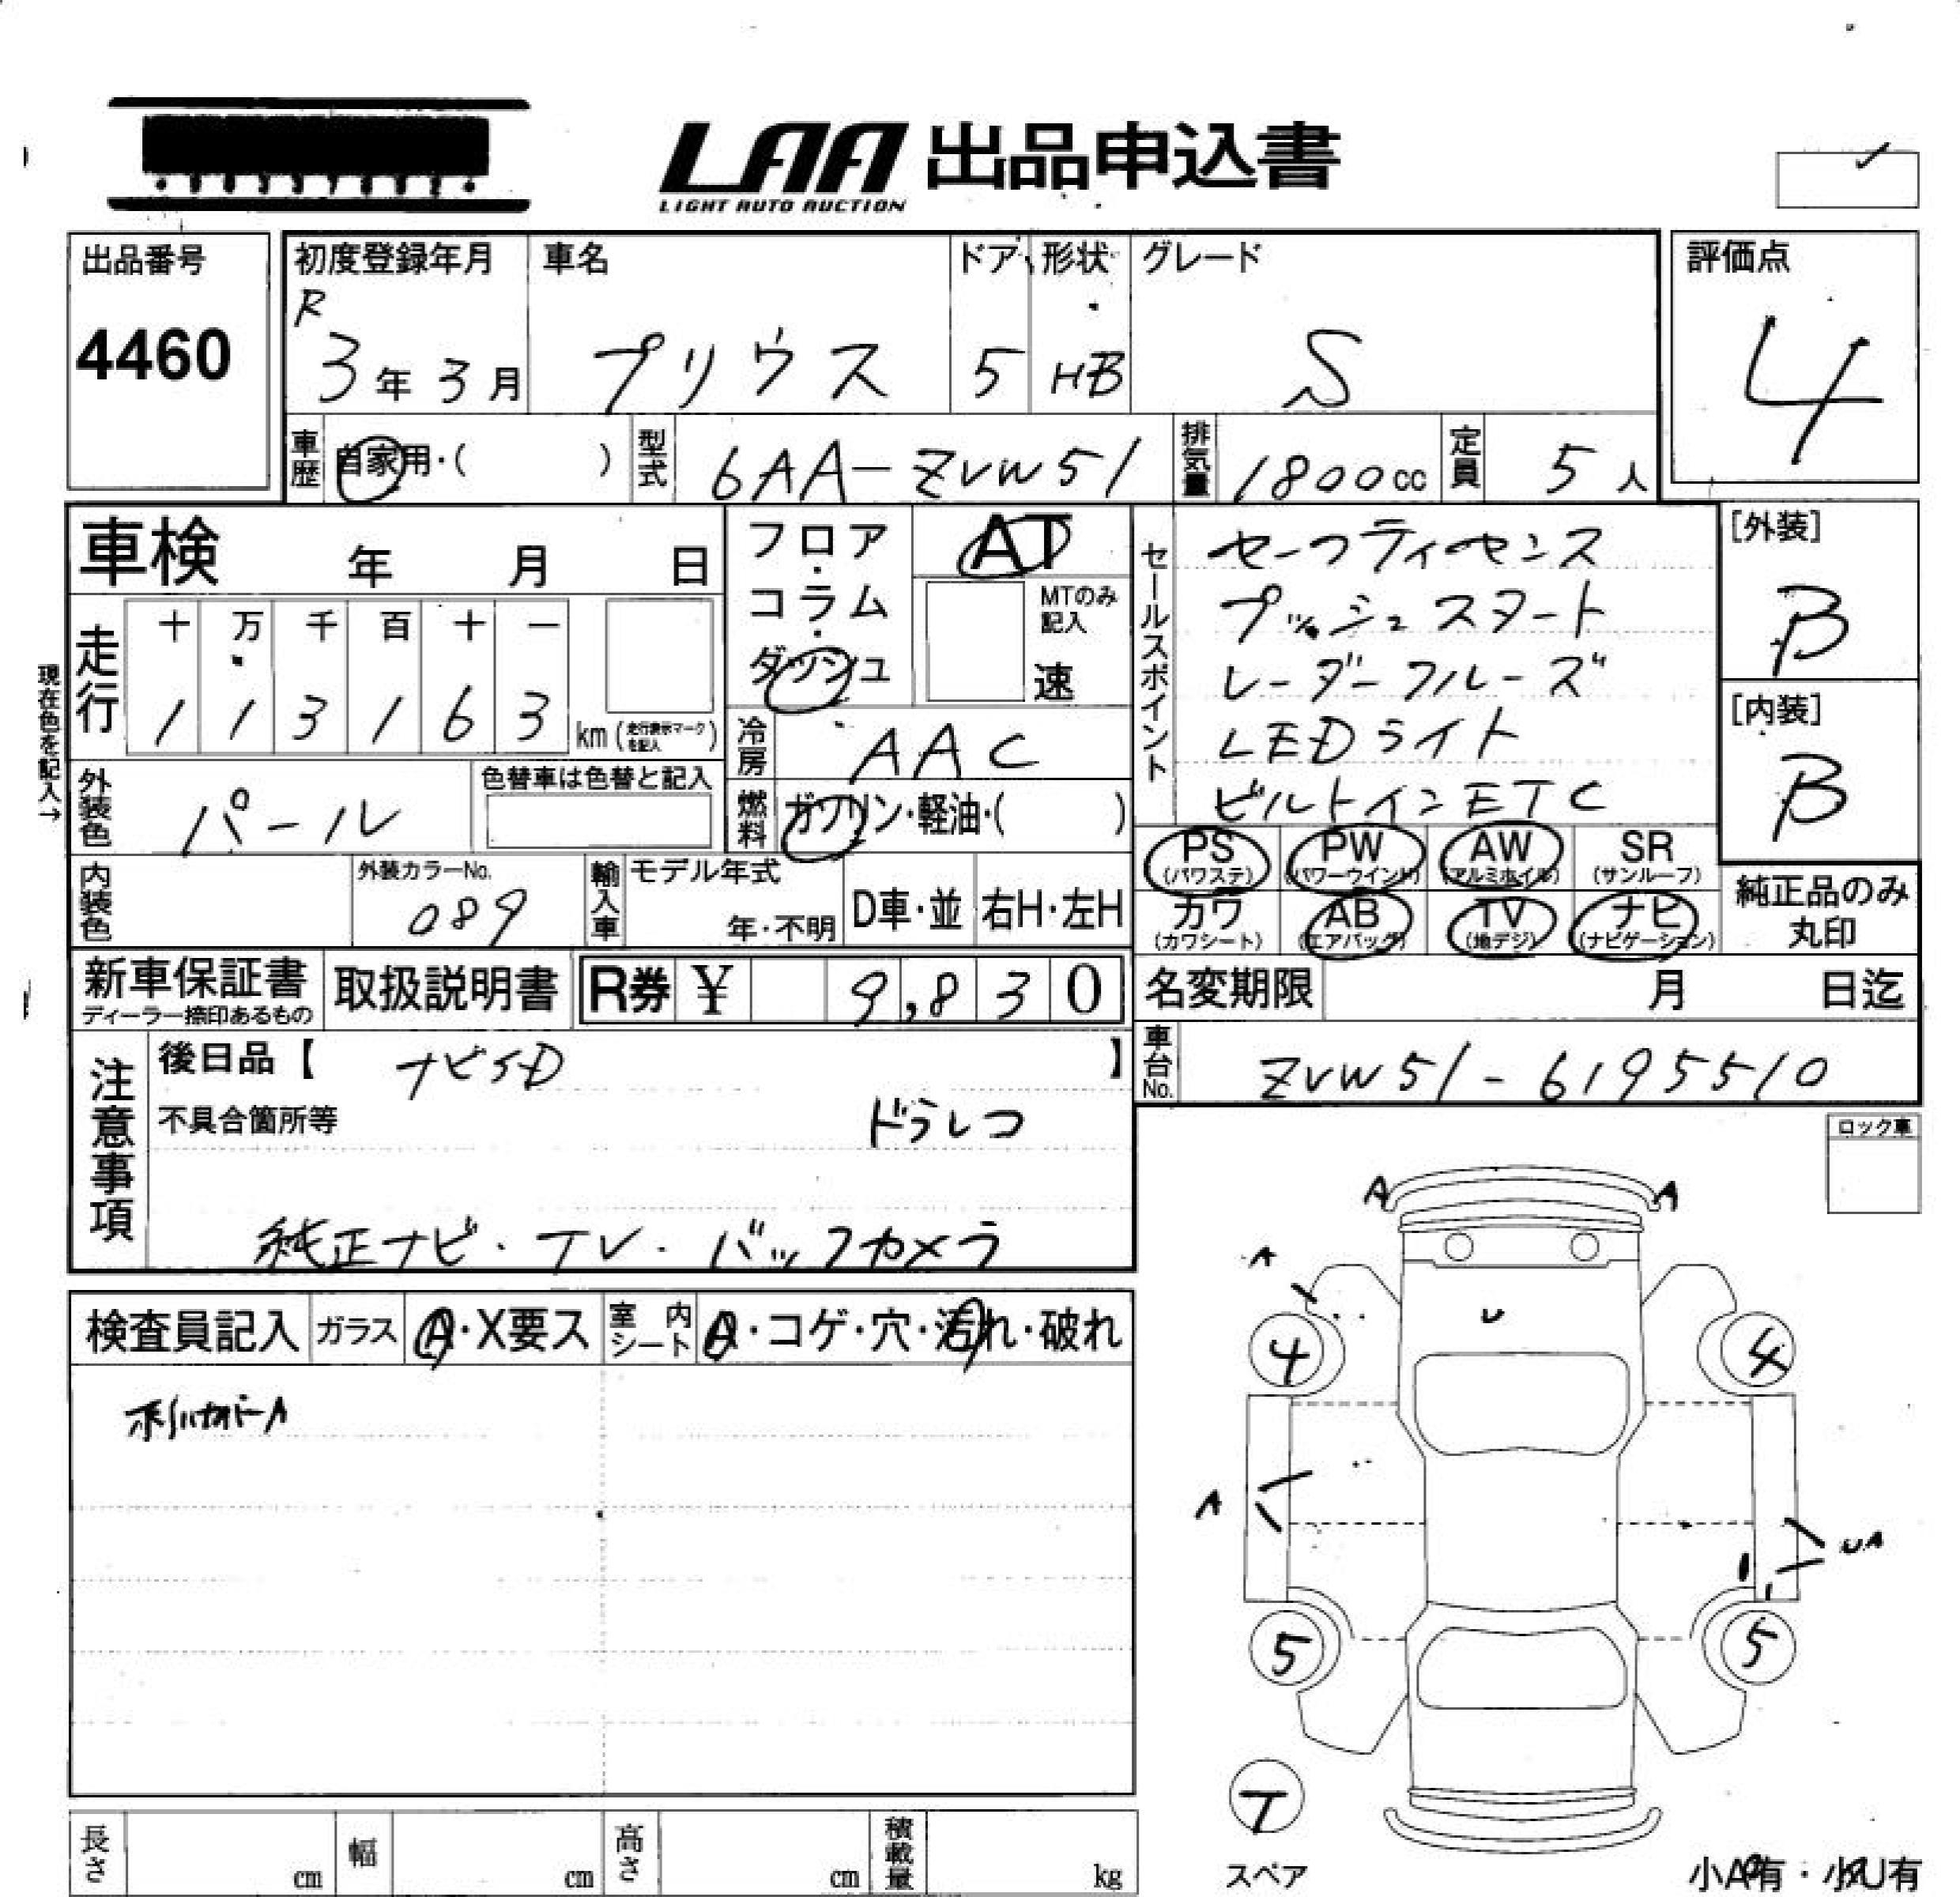 LAA 出品申込書
LIGHT AUTO AUCTION
出品番号
4460
初度登録年月
R
3年3月
車名
プリウス
ドア
5
形状
HB
グレード
S
評価点
4
車歴
自家用・( )
型式
6AA-ZVW51
排気量
1800cc
定員
5人
車検 年 月 日
フロア・コラム・ダッシュ
AT
MTのみ記入
速
セールスポイント
セーフティセンス
プッシュスタート
レーダークルーズ
LEDライト
ビルトインETC
[外装]
B
[内装]
B
現在色を記入→
走行
十 万 千 百 十 一
1 1 3 1 6 3
km(走行表示マークを記入)
冷房
AAC
外装色
パール
色替車は色替と記入
燃料
ガソリン・軽油・( )
PS (パワステ)
PW (パワーウインド)
AW (アルミホイル)
SR (サンルーフ)
カワ (カワシート)
AB (エアバッグ)
TV (地デジ)
ナビ (ナビゲーション)
純正品のみ丸印
内装色
外装カラーNo.
089
輸入車
モデル年式
年・不明
D車・並
右H・左H
新車保証書
ディーラー捺印あるもの
取扱説明書
R券 ¥ 9,830
名変期限 月 日迄
車台No.
ZVW51-6195510
注意事項
後日品【 ナビSD 】
不具合箇所等
ドラレコ
純正ナビ・TV・バックカメラ
ロック車
検査員記入
ガラス
A・X要ス
室内シート
A・コゲ・穴・汚れ・破れ
A A
A
U
4 4
A
UA
5 5
T
スペア
小A有・小U有
長さ cm
幅 cm
高さ cm
積載量 kg